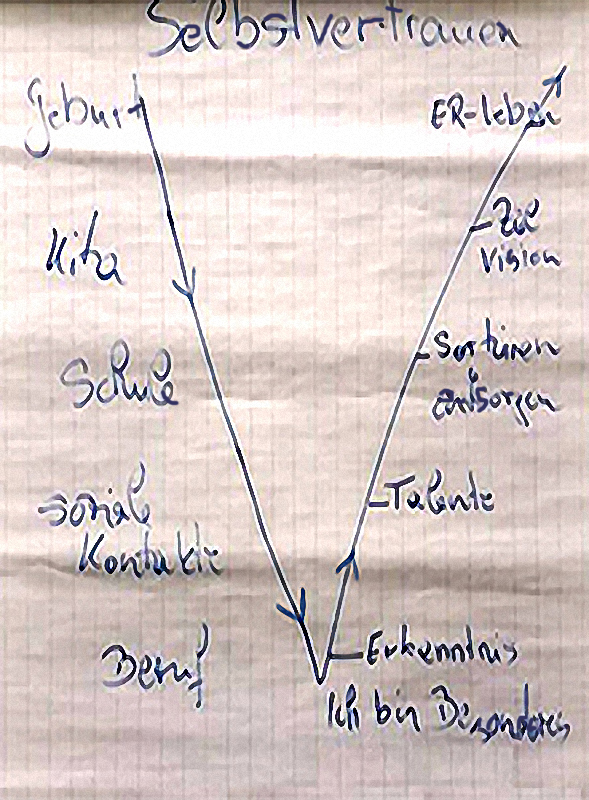 Selbstvertrauen
Geburt
Kita
Schule
soziale
Kontakte
Beruf
ER-leben
Ziel
Vision
Sortieren
entsorgen
Talente
Erkenntnis
Ich bin Besonders